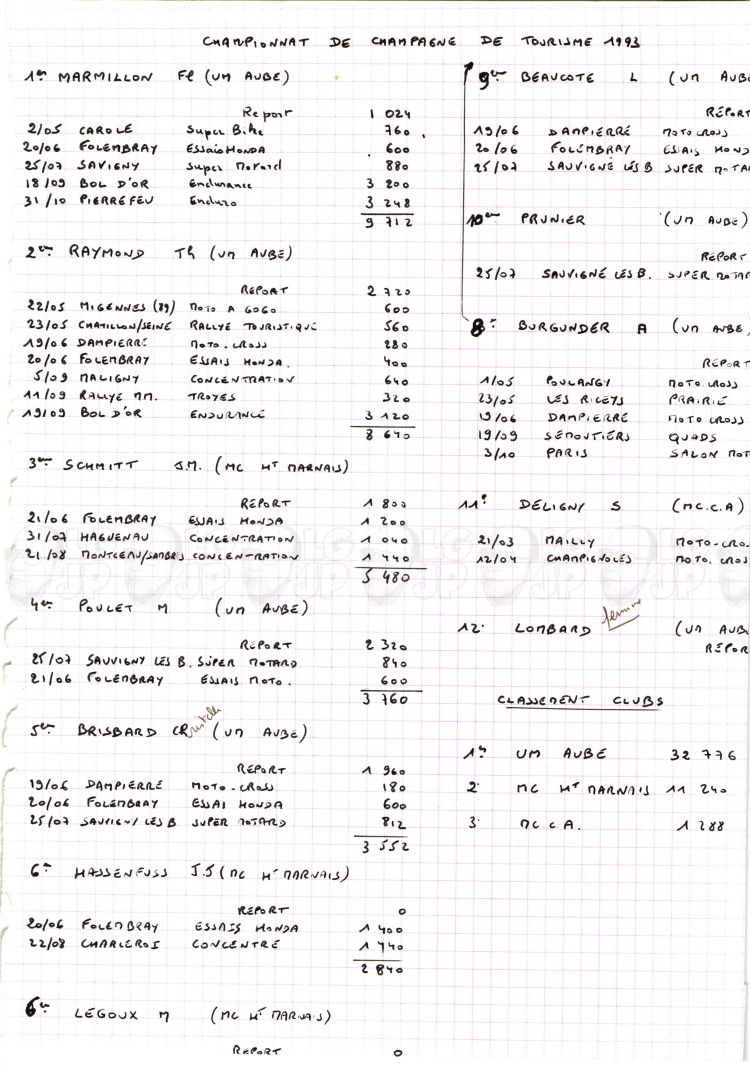 CHAMPIONNAT DE CHAMPAGNE DE TOURISME 1993
1er MARMILLON Fl (UM AUBE)
Report 1 024
2/05 CAROLE Super Bike 760
20/06 FOLEMBRAY ESSais HONDA 600
25/07 SAVIGNY Super Motard 880
18/09 BOL D'OR Endurance 3 200
31/10 PIERREFEU Enduro 3 248
9 712
2em RAYMOND Th (UM AUBE)
REPORT 2 720
22/05 MIGENNES (89) MOTO A GOGO 600
23/05 CHATILLON/SEINE RALLYE TOURISTIQUE 560
19/06 DAMPIERRE MOTO-CROSS 280
20/06 FOLEMBRAY ESSAIS HONDA. 400
5/09 MALIGNY CONCENTRATION 640
11/09 RALLYE MM. TROYES 320
19/09 BOL D'OR ENDURANCE 3 120
8 640
3em SCHMITT J.M. (MC Ht MARNAIS)
REPORT 1 800
21/06 FOLEMBRAY ESSAIS HONDA 1 200
31/07 HAGUENAU CONCENTRATION 1 040
21/08 MONTCEAU/SAMBRE CONCENTRATION 1 440
5 480
4em POULET M (UM AUBE)
REPORT 2 320
25/07 SAUVIGNY LES B. SUPER MOTARD 840
21/06 FOLEMBRAY ESSAIS MOTO. 600
3 760
5em BRISBARD Christelle (UM AUBE)
REPORT 1 960
19/06 DAMPIERRE MOTO-CROSS 180
20/06 FOLEMBRAY ESSAI HONDA 600
25/07 SAUVIGNY LES B SUPER MOTARD 812
3 552
6em HASSENFUSS J.J (MC Ht MARNAIS)
REPORT 0
20/06 FOLEMBRAY ESSAIS HONDA 1 400
22/08 CHARLEROI CONCENTRE 1 440
2 840
6em LEGOUX M (MC Ht MARNAIS)
REPORT 0
9em BEAUCOTE L (UM AUBE
REPORT
19/06 DAMPIERRE MOTO CROSS
20/06 FOLEMBRAY ESSAIS HOND
25/07 SAUVIGNE LES B SUPER MOTAR
10em PRUNIER (UM AUBE)
REPORT
25/07 SAUVIGNE LES B. SUPER MOTAR
8e BURGUNDER A (UM AUBE)
REPORT
1/05 POULANGY MOTO CROSS
23/05 LES RICEYS PRAIRIE
19/06 DAMPIERRE MOTO CROSS
19/09 SEMOUTIERS QUADS
3/10 PARIS SALON MOT
11e DELIGNY S (MC.C.A)
21/03 MAILLY MOTO-CRO
12/04 CHAMPIGNOLES MOTO. CROS
12e LOMBARD femme (UM AUB
REPOR
CLASSEMENT CLUBS
1er UM AUBE 32 776
2e MC Ht MARNAIS 11 240
3e MC C.A. 1 288